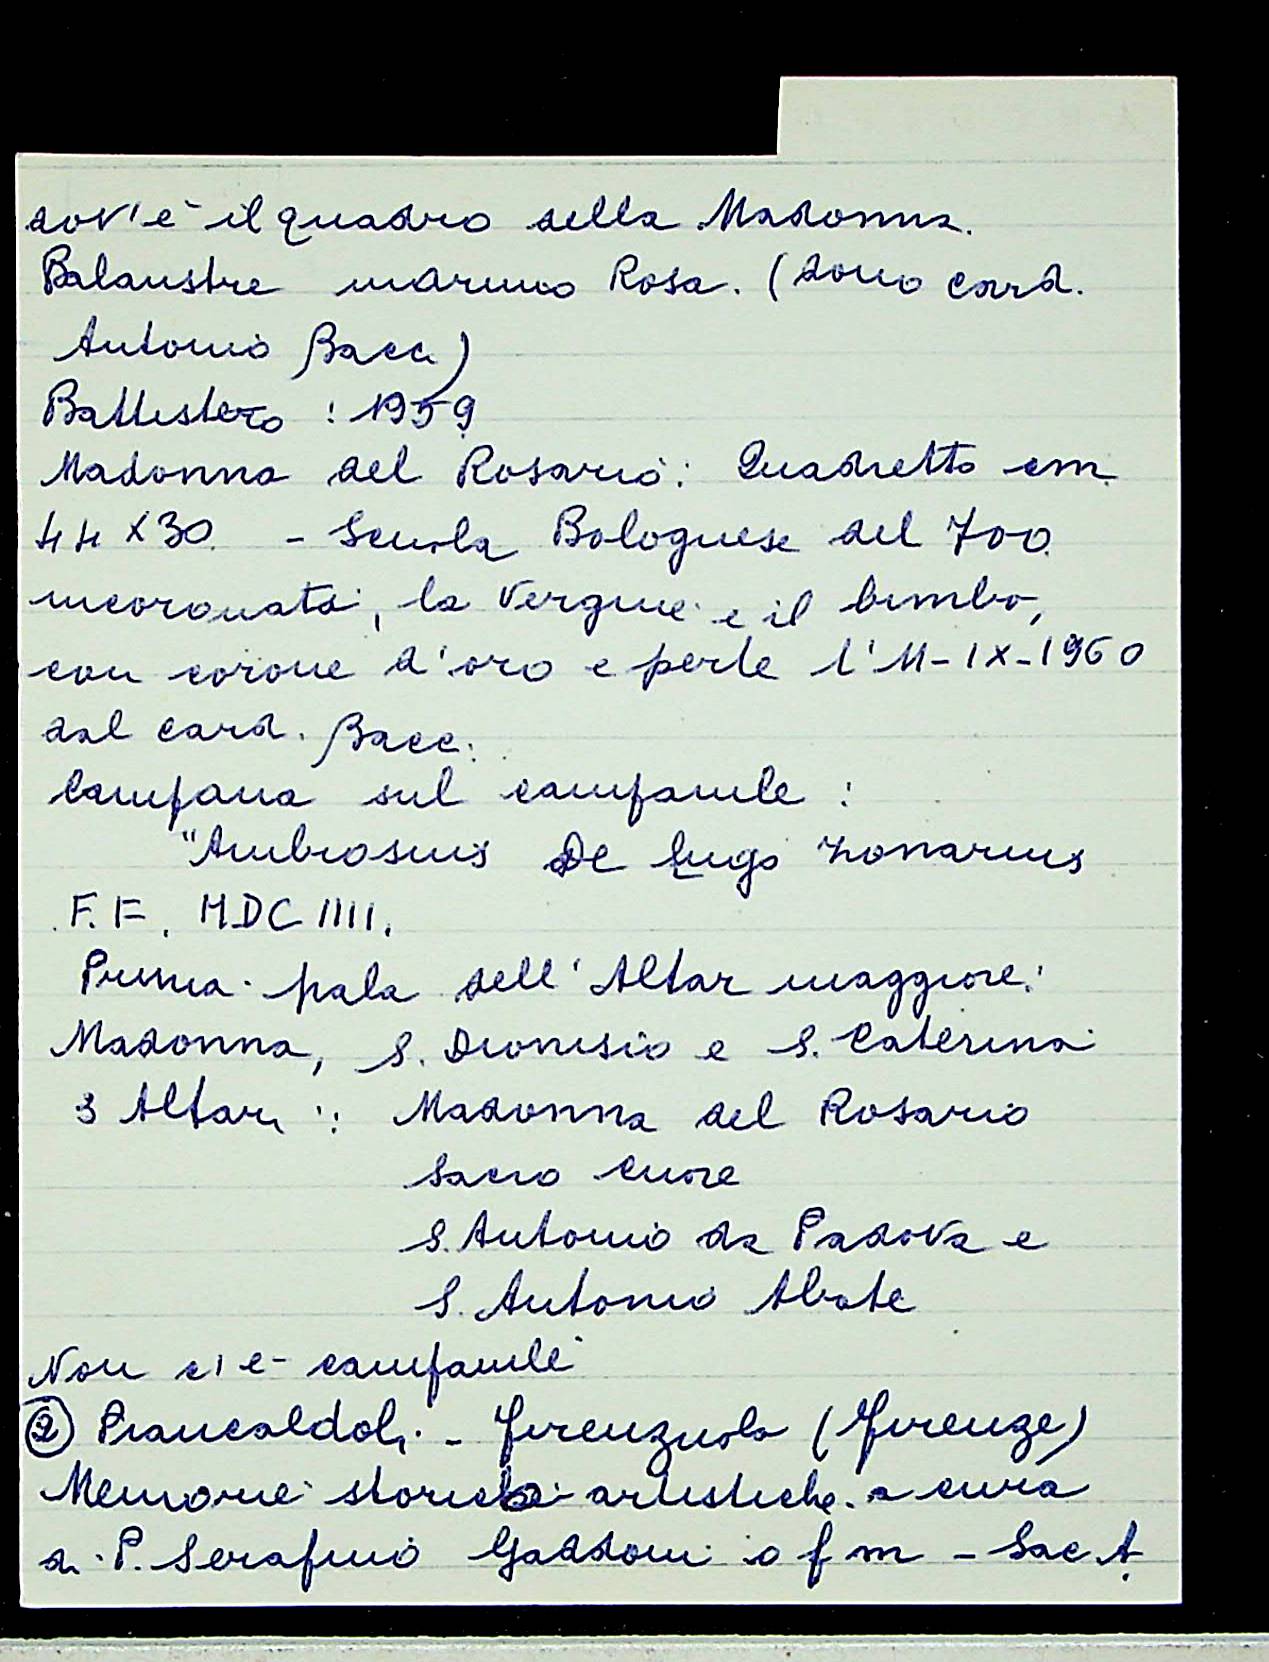 dov'è il quadro della Madonna.
Balaustre marmo Rosa. (dono card.
Antonio Bacci)
Battistero : 1959
Madonna del Rosario: Quadretto cm.
44 x 30 - Scuola Bolognese del 700.
incoronata, la Vergine e il bimbo,
con corone d'oro e perle l'11-IX-1960
dal card. Bacci.
Campana sul campanile :
"Ambrosius De Lugo Zonarius
F. F. MDC IIII.
Prima pala dell'Altar maggiore:
Madonna, S. Dionisio e S. Caterina
3 Altari : Madonna del Rosario
Sacro Cuore
S. Antonio da Padova e
S. Antonio Abate
Non ci è campanile
② Piancaldoli - Firenzuola (Firenze)
Memorie storiche artistiche a cura
di P. Serafino Gaddoni o f m - Sac A.